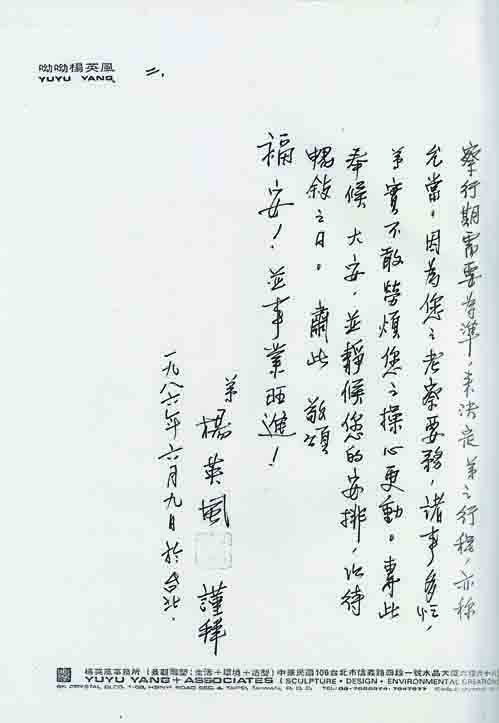 呦呦楊英風
YUYU YANG
二.
察行期需要為準,来決定弟之行程,亦称
允當。因為您之考察要務,諸事多忙,
弟實不敢勞煩您之操心更動。專此
奉候 大安,並靜候您的安排,以待
暢敘之日。肅此 敬頌
福安!並事業旺進!
弟 楊英風 謹拜
一九八六年六月九日於台北.
楊英風事務所 (景觀雕塑:生活+環境+造型) 中華民國106台北市信義路四段一號水晶大廈六樓
YUYU YANG + ASSOCIATES (SCULPTURE · DESIGN · ENVIRONMENTAL CREATION
CRYSTAL BLDG. ROAD SEC. TAIPEI, TAIWAN, R.O.C.